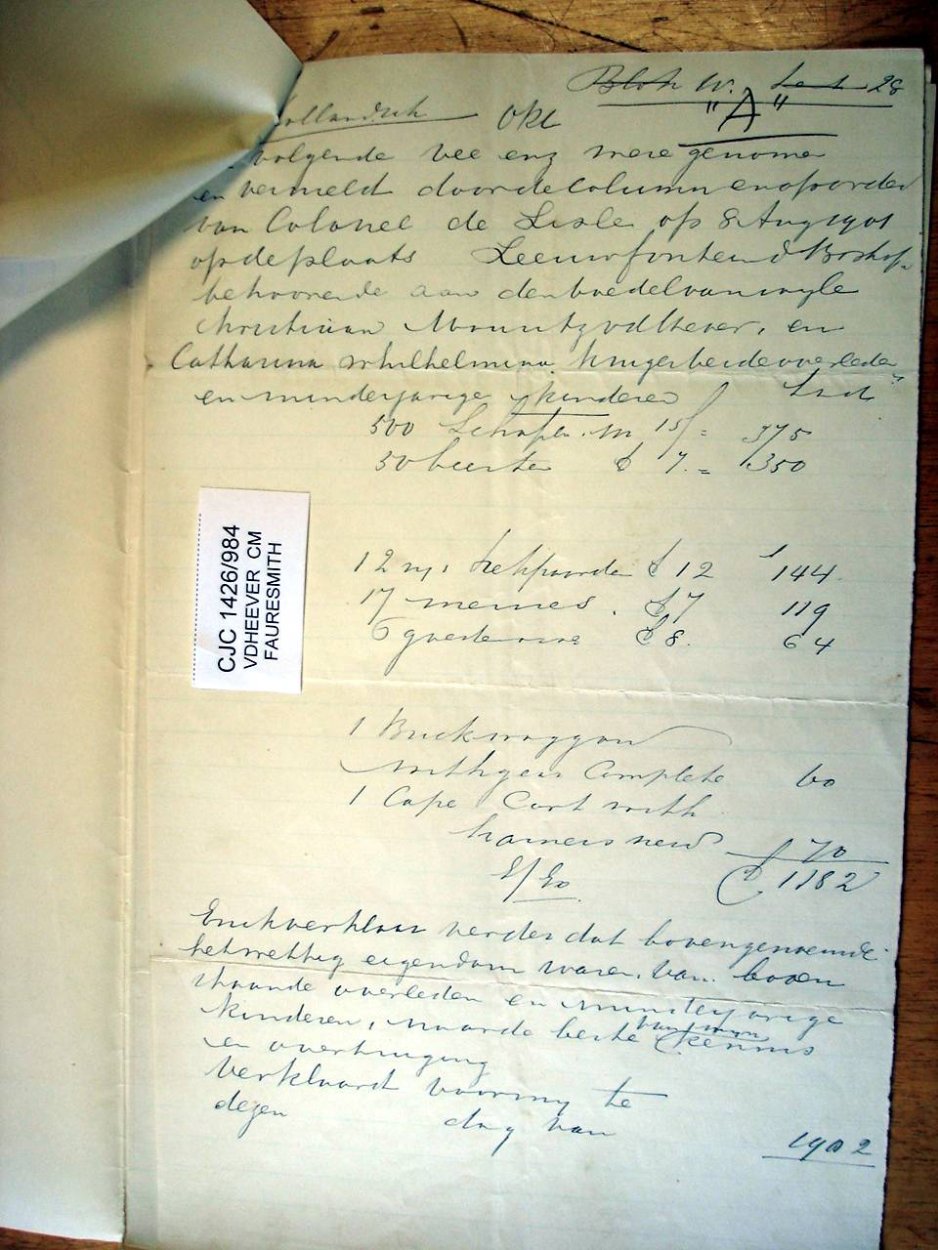 Blok W. Lot 28
"A"
Hollandsch
volgende vee enz were genome
en vermeld door de column en op order
van Colonel de Lisle op 8 Aug 1901
op de plaats Leeuwfontein d Boshof
behoorende aan den boedel van wyle
Christiaan Mouritz vd Hever, en
Catharina Whilhelmina Kruger beide overleden
en minderjarige kinderen
500 Schapen 15/ = 375
50 beesten £ 7. = 350
12 trekpaarde £ 12 144
17 merries. £ 7 119
£ 8. 64
1 Buckwaggon
with gear Complete 60
1 Cape Cart with
harness new 70
E/Eo £ 1182
En ik verklaar verder dat bovengenoemde
het wettig eigendom waren van boven
staande overleden en minderjarige
kinderen, naar de beste van myn kennis
en overtuiging
Verklaard voor my te
dezen dag van
1902
CJC 1426/984
VDHEEVER CM
FAURESMITH